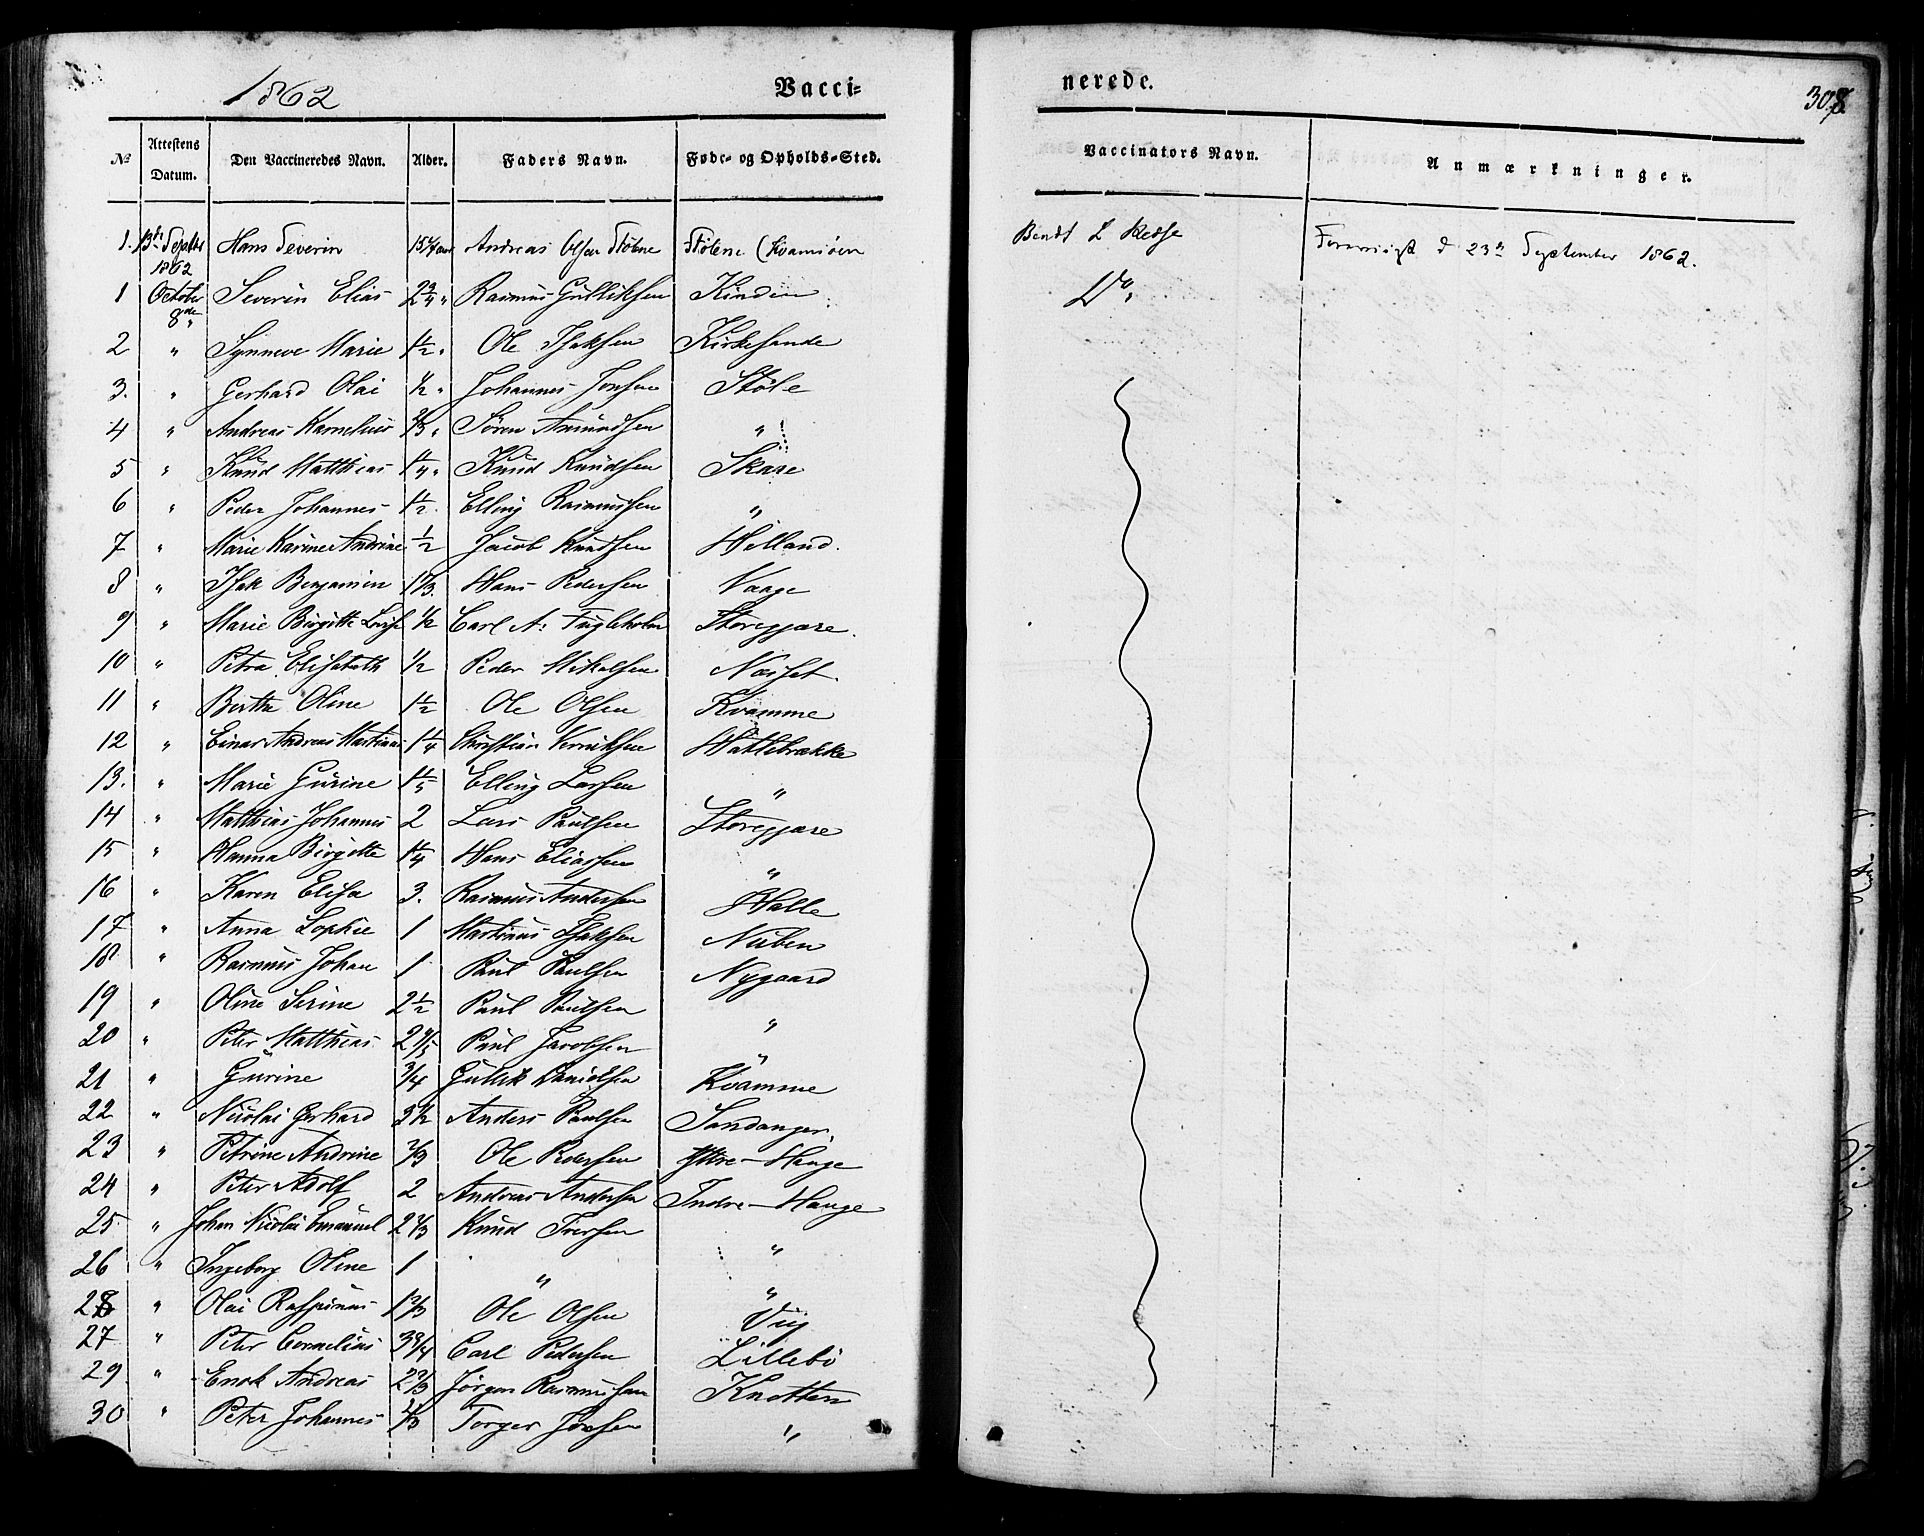 1862 Vacci= nerede. 308
№ Attestens Datum. Den Vaccineredes Navn. Alder. Faders Navn. Føde- og Opholds-Sted. Vaccinators Navn. Anmærkninger.
1. 13de Septbr 1862 Hans Severin Andreas Olsen Stølene Stølene (Kvamsøen Bendt L 23de September 1862.
1 October 8de " Severin Elias 2 3/4 " Rasmus Gulliksen Kinden Do
2 " Synneve Marie 1 1/2 " Ole Isaksen Kirkesande
3. " Gerhard Olai 1/2 " Johannes Jonsen Støle
4 " Andreas Kornelius 2/3 " Søren Amundsen "
5 " Knud Matthias 1 1/4 " Knud Knudsen Skare
6 " Peder Johannes 1 1/2 " Elling Rasmussen "
7 " Marie Karine Andrine 1/2 Jacob Knudsen Helland.
8 " Isak Benjamin 1 1/3. Hans Pedersen Vaage
9 " Marie Birgitte Lovise 1/2 Carl A: Fugleholm Storeggare.
10 " Petra Elisabeth 1/2 Peder Mikelsen Næsset.
11 " Berthe Oline 1 1/2 Ole Olsen Kvamme
12 " Einar Andreas Martinus 1 1/4 Christian Henriksen Hattebrække
13. " Marie Gurine 1 1/5 Elling Larsen "
14 " Matthias Johannes 2 Lars Paulsen Storeggare
15 " Hanna Birgitte 1 1/4 Hans Eliassen "
16 " Karen Elisa 3. Rasmus Andersen Halle
17 " Anna Sophie 1 Martinus Isaksen Nuben
18 " Rasmus Johan 1 Paul Paulsen Nygaard
19 " Oline Serine 2 1/2 Paul Paulsen "
20 " Peter Matthias Paul Jacobsen "
21 " Gurine 3/4 Gullik Danielsen Kvamme
22 " Nicolai Gerhard 3 1/2 Anders Paulsen Sandanger.
23 " Petrine Andrine 2/3 Ole Pedersen Yttre-Hauge
24 " Peter Adolf 2 Andreas Andersen Indre-Hauge
25. " Johan Nicolai Emanuel 2 2/3 Knud Iversen "
26 " Ingeborg Oline 1 " "
28 " Olai Raspinus 1 2/3 Ole Olsen Vig
27 " Peter Cornelius 3 3/4 Carl Pedersen Lillebö
29 " Enok Andreas 2 2/3 Jørgen Rasmussen Knotten
30 " Peter Johannes 2/3 Torger Jonsen "